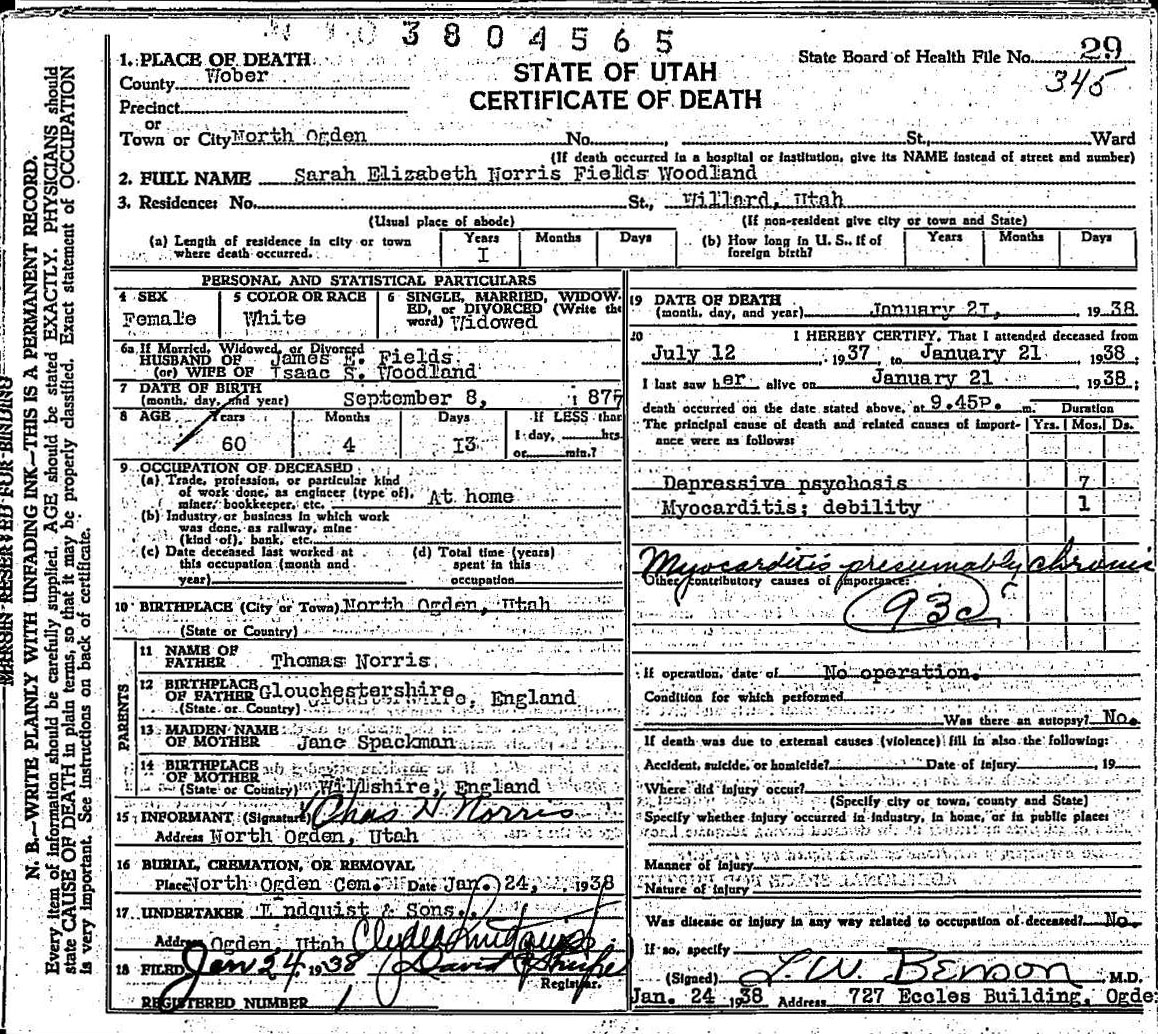 3 8 0 4 5 6 5
State Board of Health File No. 29
345
STATE OF UTAH
CERTIFICATE OF DEATH
1. PLACE OF DEATH
County Weber
Precinct
or
Town or City North Ogden No. St., Ward
(If death occurred in a hospital or institution, give its NAME instead of street and number)
2. FULL NAME Sarah Elizabeth Norris Fields Woodland
3. Residence: No. St., Willard, Utah
(Usual place of abode) (If non-resident give city or town and State)
(a) Length of residence in city or town where death occurred. Years I Months Days
(b) How long in U. S., if of foreign birth? Years Months Days
PERSONAL AND STATISTICAL PARTICULARS
4 SEX Female
5 COLOR OR RACE White
6 SINGLE, MARRIED, WIDOWED, or DIVORCED (Write the word) Widowed
6a If Married, Widowed, or Divorced
HUSBAND OF James E. Fields
(or) WIFE OF Isaac S. Woodland
7 DATE OF BIRTH
(month, day, and year) September 8, 1877
8 AGE Years 60 Months 4 Days I3 If LESS than 1 day, hrs. or min.?
9 OCCUPATION OF DECEASED
(a) Trade, profession, or particular kind
of work done, as engineer (type of),
miner, bookkeeper, etc. At home
(b) Industry or business in which work
was done, as railway, mine
(kind of), bank, etc.
(c) Date deceased last worked at
this occupation (month and
year)
(d) Total time (years)
spent in this
occupation
10 BIRTHPLACE (City or Town) North Ogden, Utah
(State or Country)
PARENTS
11 NAME OF
FATHER Thomas Norris
12 BIRTHPLACE
OF FATHER Glouchestershire, England
(State or Country)
13 MAIDEN NAME
OF MOTHER Jane Spackman
14 BIRTHPLACE
OF MOTHER
(State or Country) Wiltshire, England
15 INFORMANT (Signature) Chas H Norris
Address North Ogden, Utah
16 BURIAL, CREMATION, OR REMOVAL
Place North Ogden Cem. Date Jan. 24, 1938
17 UNDERTAKER Lindquist & Sons
Address Ogden, Utah
18 FILED Jan 24 1938 David
Registrar.
REGISTERED NUMBER 1
19 DATE OF DEATH
(month, day, and year) January 2I, 1938
20 I HEREBY CERTIFY, That I attended deceased from
July 12 1937 to January 21 1938
I last saw her alive on January 21 1938;
death occurred on the date stated above, at 9.45P. m. Duration
The principal cause of death and related causes of importance were as follows: Yrs. Mos. Ds.
Depressive psychosis 7
Myocarditis; debility 1
Myocarditis presumably chronic
Other contributory causes of importance:
93c
If operation, date of No operation.
Condition for which performed
Was there an autopsy? No.
If death was due to external causes (violence) fill in also the following:
Accident, suicide, or homicide? Date of injury , 19
Where did injury occur?
(Specify city or town, county and State)
Specify whether injury occurred in industry, in home, or in public place:
Manner of injury
Nature of injury
Was disease or injury in any way related to occupation of deceased? No.
If so, specify
(Signed) L. W. Benson M.D.
Jan. 24 1938 Address 727 Eccles Building, Ogde
MARGIN RESERVED FOR BINDING
N. B.—WRITE PLAINLY WITH UNFADING INK—THIS IS A PERMANENT RECORD.
Every item of information should be carefully supplied. AGE should be stated EXACTLY. PHYSICIANS should
state CAUSE OF DEATH in plain terms, so that it may be properly classified. Exact statement of OCCUPATION
is very important. See instructions on back of certificate.